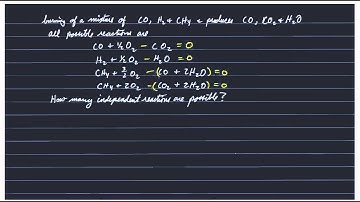 burning of a mixture of CO, H₂ & CH₄ & produces CO, CO₂ & H₂O
all possible reactions are
CO + ½O₂ - CO₂ = 0
H₂ + ½O₂ - H₂O = 0
CH₄ + 3/2 O₂ - (CO + 2H₂O) = 0
CH₄ + 2O₂ - (CO₂ + 2H₂O) = 0
How many independent reactions are possible?